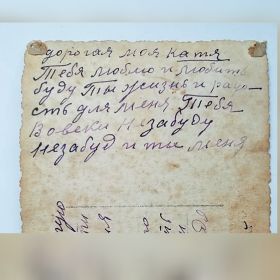 дорогая моя катя
Тебя люблю и любить
буду Ты жизнь и радо-
сть для меня Тебя
Вовеки Незабуду
Незабуд и ти меня